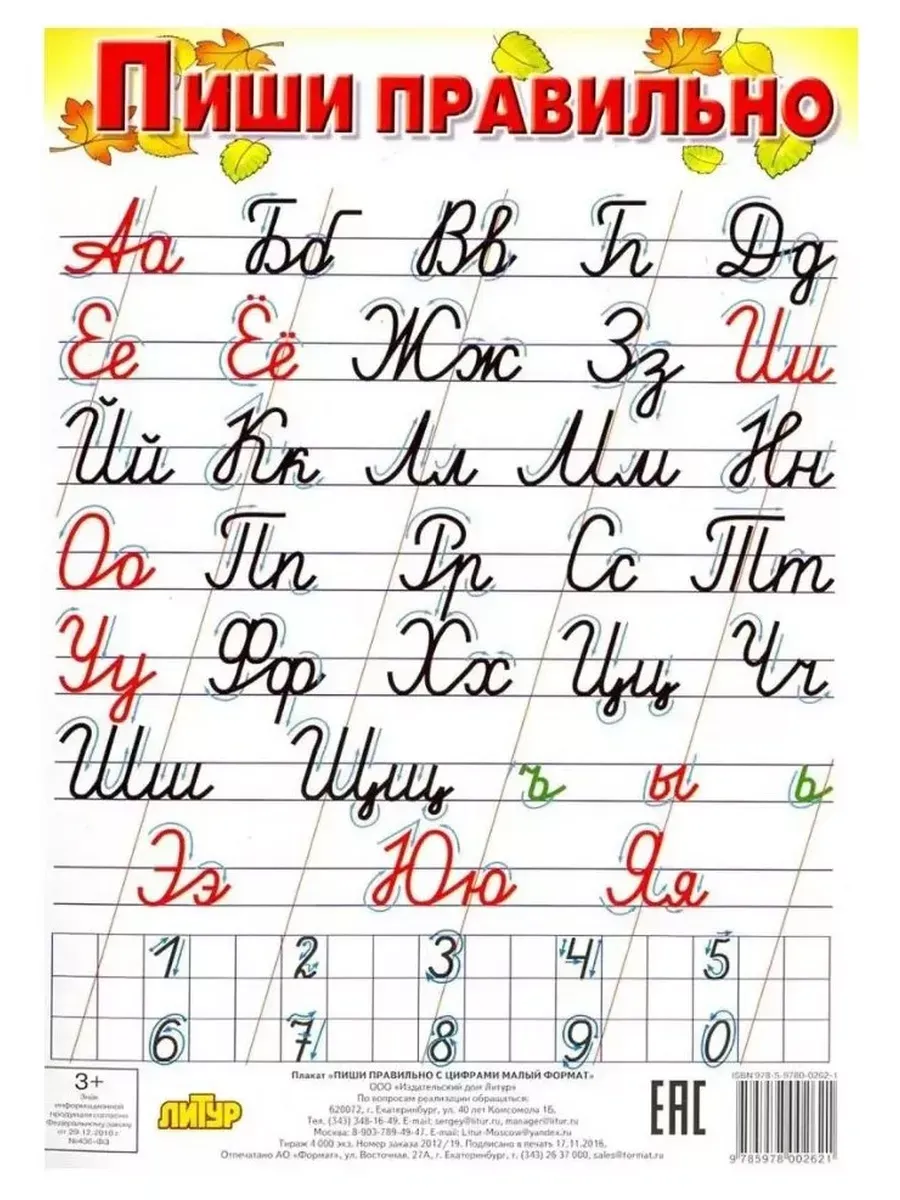 Пиши правильно
Аа Бб Вв Гг Дд
Ее Ёё Жж Зз Ии
Йй Кк Лл Мм Нн
Оо Пп Рр Сс Тт
Уу Фф Хх Цц Чч
Шш Щщ ъ ы ь
Ээ Юю Яя
1 2 3 4 5
6 7 8 9 0
3+
Знак
информационной
продукции согласно
Федеральному закону
от 29.12.2010 г.
№436-ФЗ
ЛИТУР
Плакат «ПИШИ ПРАВИЛЬНО С ЦИФРАМИ МАЛЫЙ ФОРМАТ»
ООО «Издательский дом Литур»
По вопросам реализации обращаться:
620072, г. Екатеринбург, ул. 40 лет Комсомола 1Б.
Тел. (343) 348-16-49, E-mail: sergey@litur.ru, manager@litur.ru
Москва: 8-903-789-49-47. E-mail: Litur-Moscow@yandex.ru
Тираж 4 000 экз. Номер заказа 2012/19. Подписано в печать 17.11.2016.
Отпечатано АО «Формат», ул. Восточная, 27А, г. Екатеринбург, т. (343) 26 37 000, sales@format.ru
EAC
ISBN 978-5-9780-0262-1
9 785978 002621